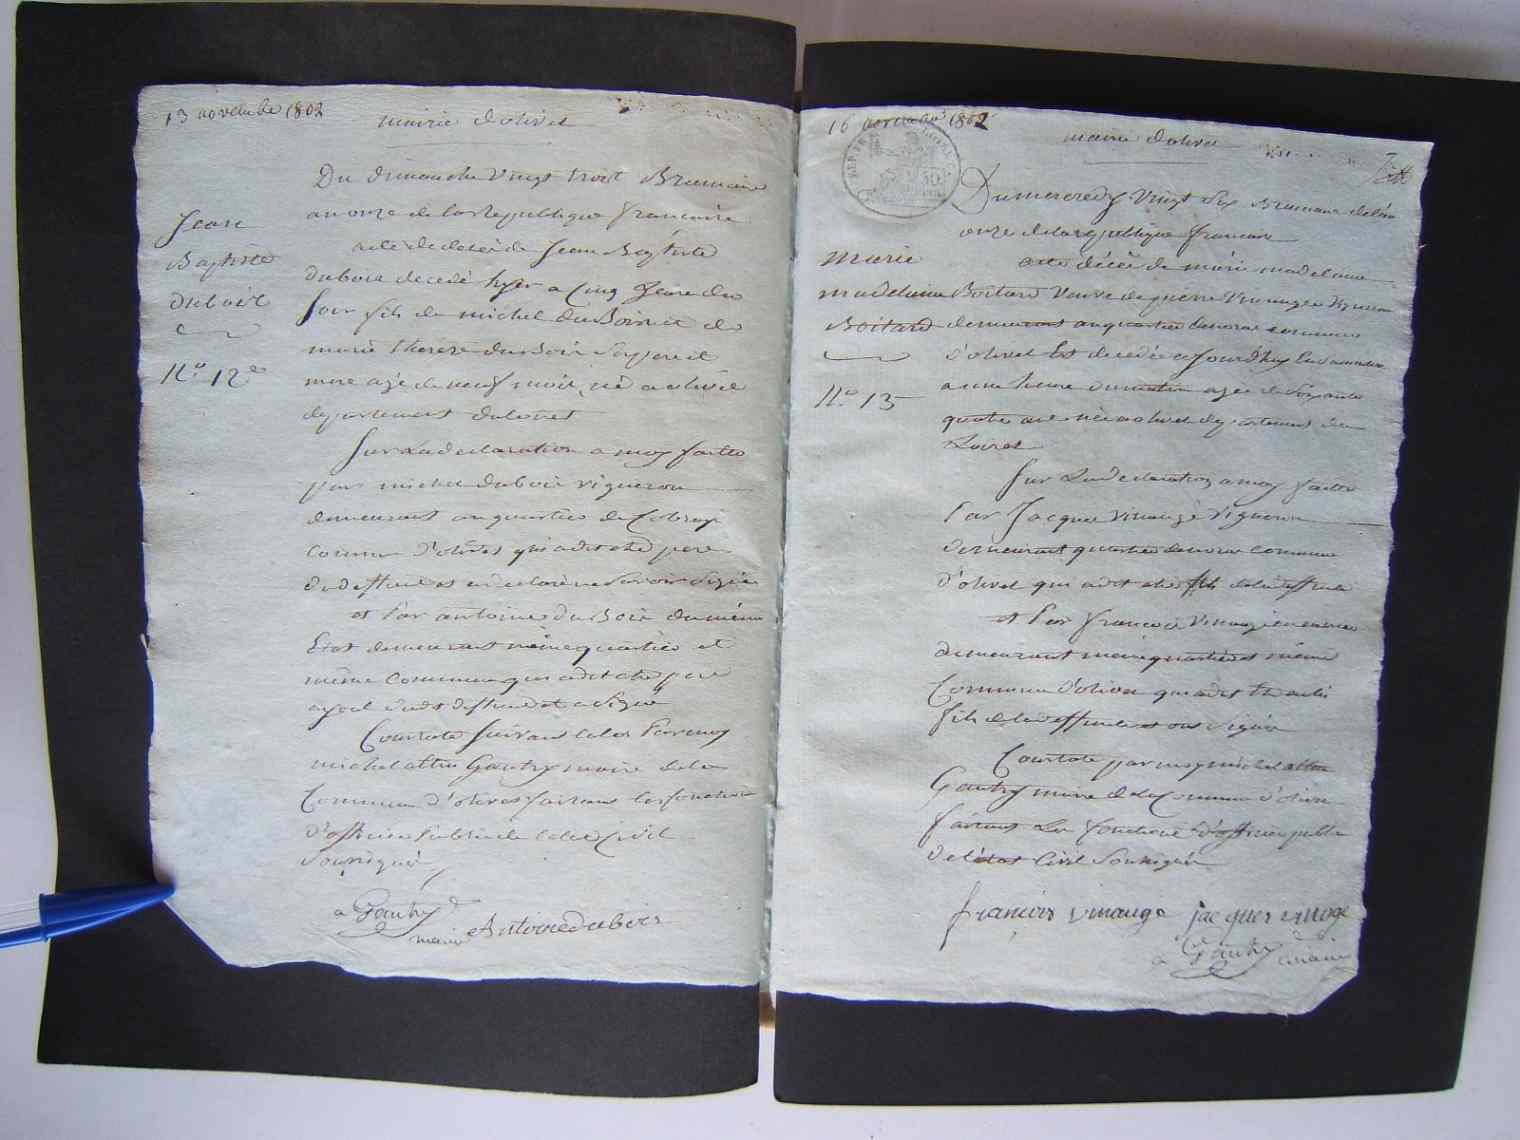 13 novembre 1802
mairie d'olivet
Du dimanche vingt trois Brumaire
an onze de la Republique francaise
acte de décès de Jean Baptiste
dubois decedé hyer a cinq heure du
soir fils de michel duBois et de
marie therese duBois ses pere et
mere agé de neuf mois né a olivet
departement du loiret
Jean
Baptiste
dubois
N.º 12e
sur la declaration a moy faitte
par michel dubois vigneron
demeurant au quartier de
commune d'olivet qui a dit etre pere
du deffunt et a declaré ne savoir signé
et par antoine du Bois du même
Etat demeurant même quartier et
même commune qui a dit etre pere
ayeul dudit deffunt et a signé
Constaté suivant la loi par moy
michel Gautry maire de la
Commune d'olivet faisant les fonction
d'officier public de l'etat civil
soussigné
Gautry
maire
Antoine dubois
16 novembre 1802
mairie d'olivet
REP. FRA.
Du mercredy vingt six Brumaire de l'an
onze de la republique francaise
acte décès de marie madelaine
Boitard veuve de pierre vinauge vigneron
demeurant au quartier commune
d'olivet Est decedée ce jourd'huy
a une heure du matin agée de soixante
quatre ans née a olivet departement du
Loiret
Marie
madelaine
Boitard
N.º 13
sur la declaration a moy faitte
Par Jacques vinauge vigneron
demeurant quartier commune
d'olivet qui a dit etre fils de la deffunte
et Par francois vinauge
demeurant même quartier et même
Commune d'olivet qui a dit Etre aussi
fils de la deffunte et ont signé
Constaté par moy michel
Gautry maire de la Commune d'olivet
faisant les fonctions d'officier public
de l'état civil soussigné
francois vinauge jacques vinoge
Gautry maire